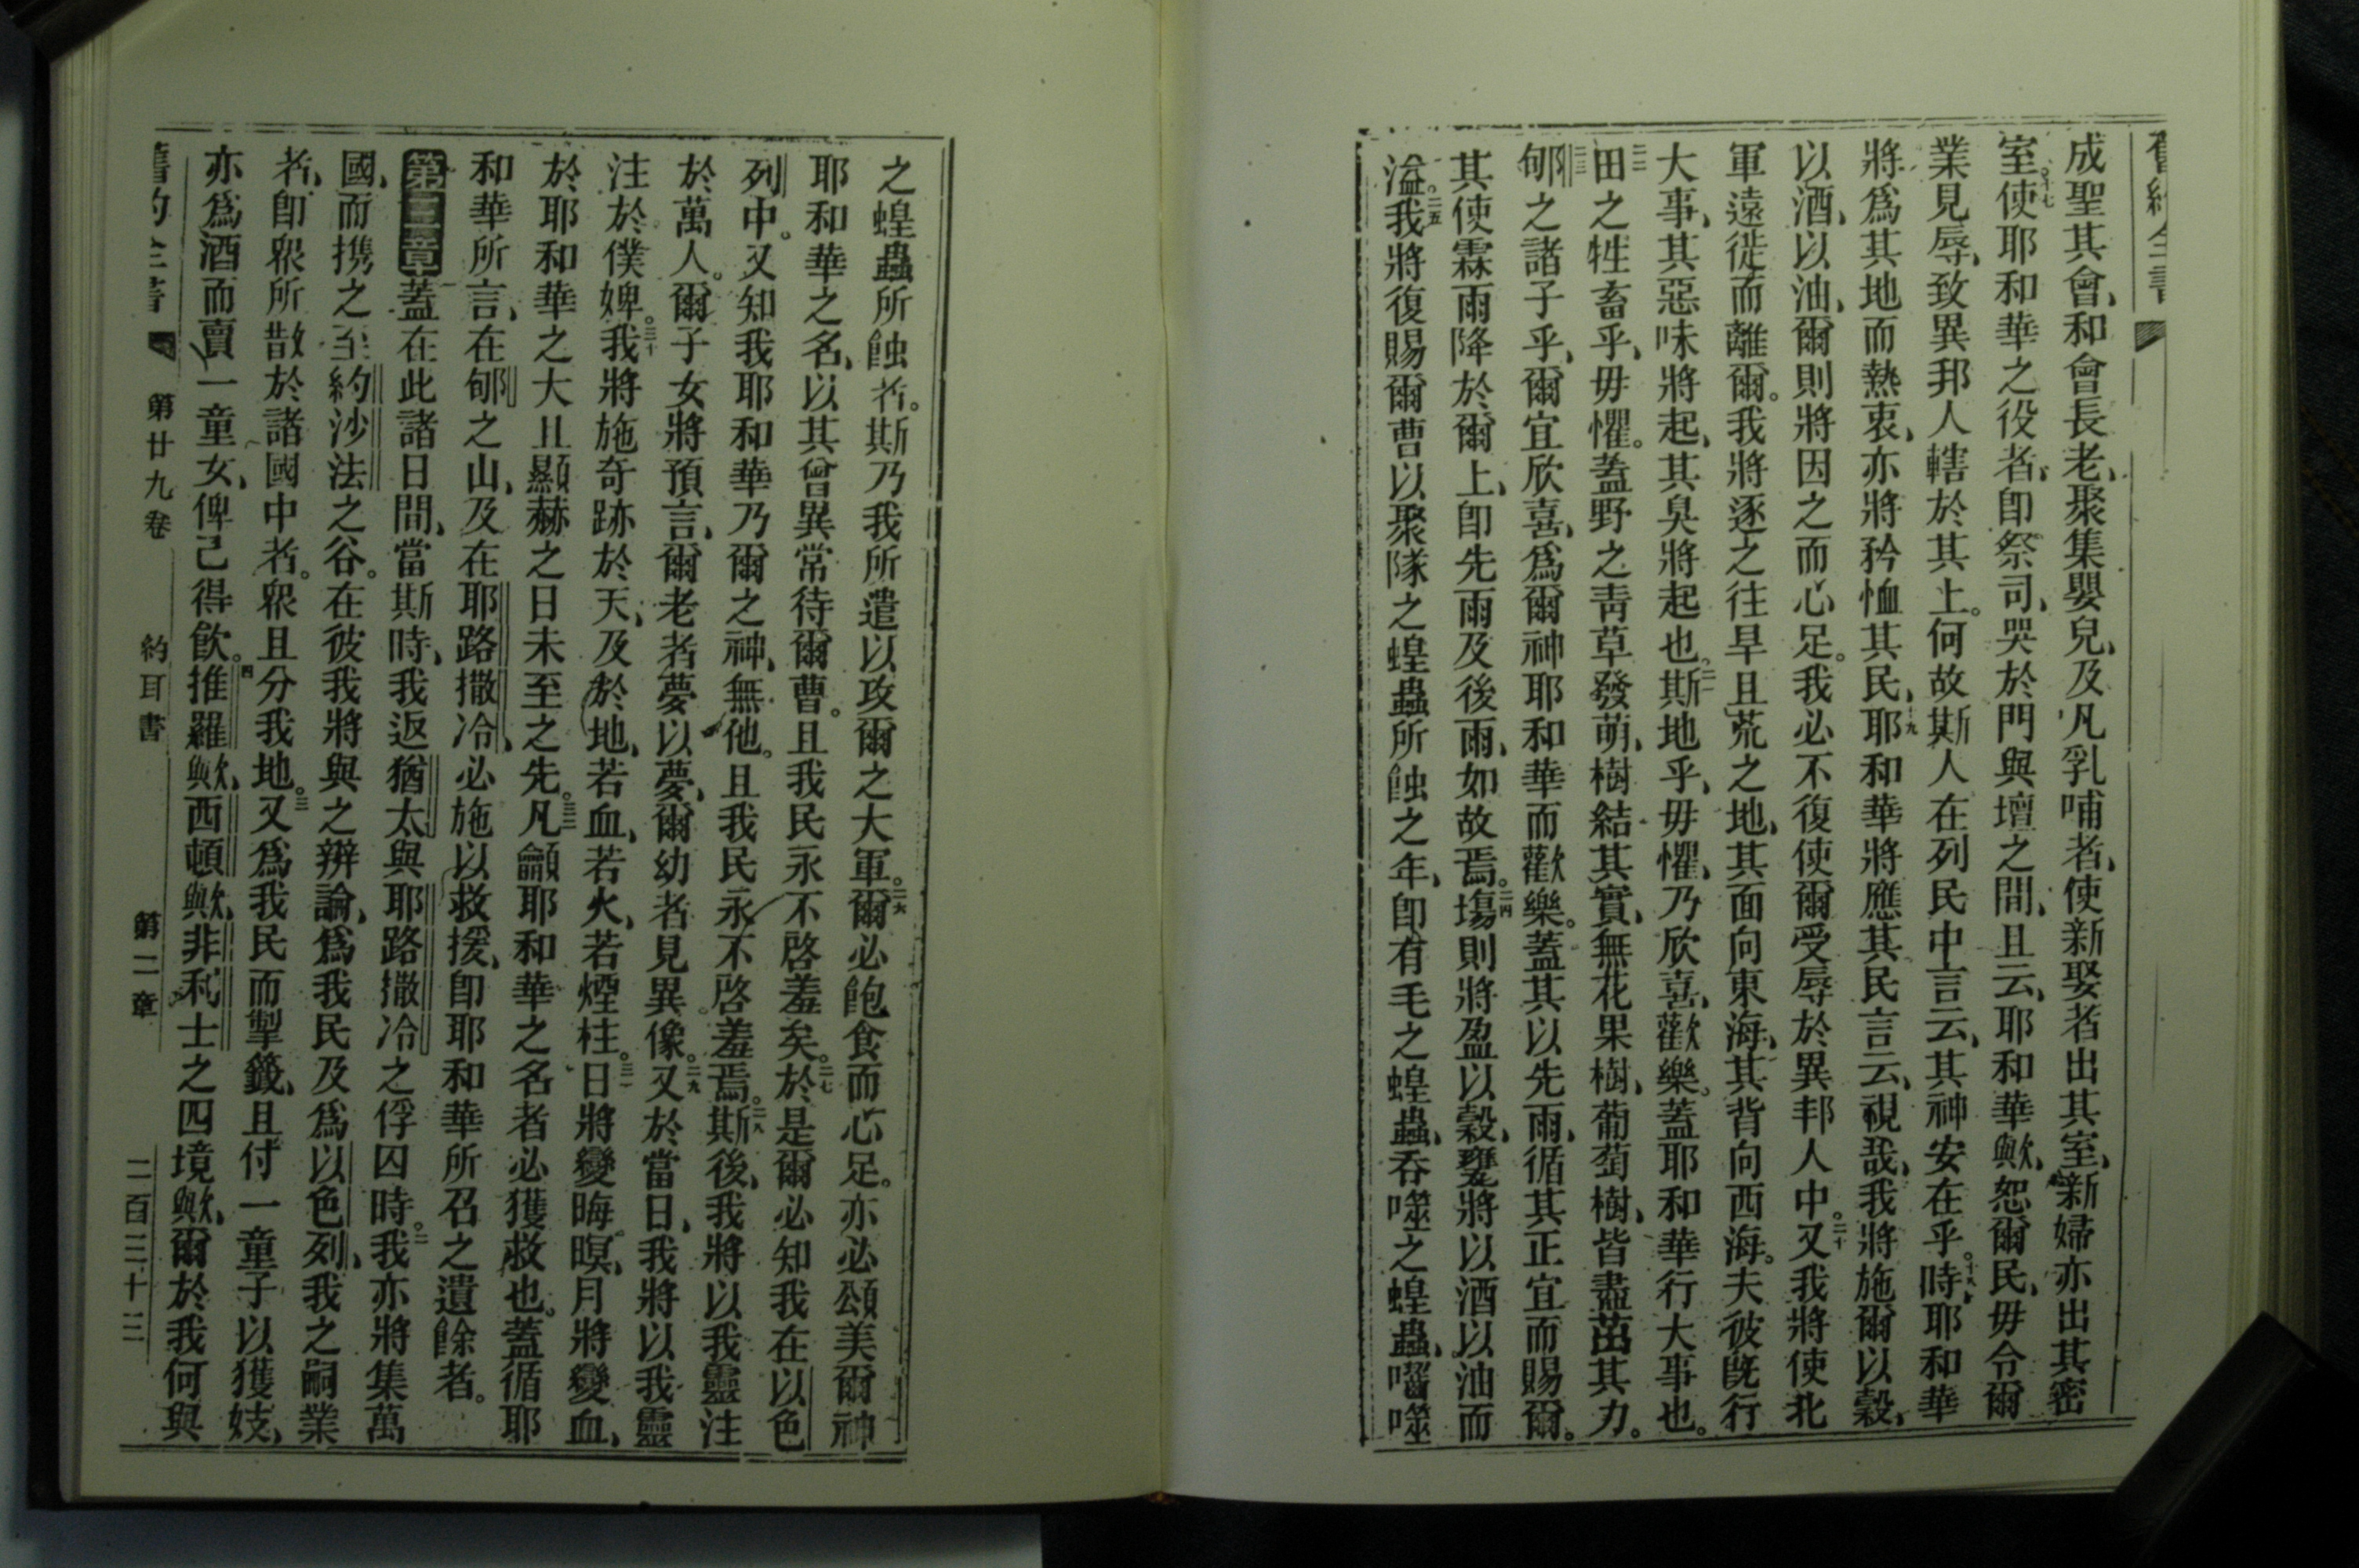 舊約全書
成聖其會、和會長老、聚集嬰兒、及凡乳哺者、使新娶者出其室、新婦亦出其密
室。十七使耶和華之役者、卽祭司、哭於門與壇之間、且云、耶和華歟、恕爾民、毋令爾
業見辱、致異邦人轄於其上。何故斯人在列民中言云、其神安在乎。十八時、耶和華
將爲其地而熱衷、亦將矜恤其民、十九耶和華將應其民言云、視哉、我將施爾以穀、
以酒、以油、爾則將因之而心足。我必不復使爾受辱於異邦人中。二十又我將使北
軍遠徙而離爾。我將逐之往旱且荒之地、其面向東海、其背向西海。夫彼旣行
大事、其惡味將起、其臭將起也。二一斯地乎、毋懼、乃欣喜、歡樂。蓋耶和華行大事也。
二二田之牲畜乎、毋懼。蓋野之靑草發萌、樹結其實、無花果樹、葡萄樹、皆盡茁其力。
二三郇之諸子乎、爾宜欣喜、爲爾神耶和華而歡樂。蓋其以先雨、循其正宜而賜爾。
其使霖雨降於爾上、卽先雨及後雨、如故焉。二四塲則將盈以穀、甕將以酒以油而
溢。二五我將復賜爾曹以聚隊之蝗蟲所蝕之年、卽有毛之蝗蟲、吞噬之蝗蟲、囓噬
之蝗蟲所蝕者。斯乃我所遣以攻爾之大軍。二六爾必飽食而心足。亦必頌美爾神
耶和華之名、以其曾異常待爾曹。且我民永不啓羞矣。二七於是爾必知我在以色
列中。又知我耶和華乃爾之神、無他。且我民永不啓羞焉。二八斯後、我將以我靈注
於萬人。爾子女將預言、爾老者夢以夢、爾幼者見異像。二九又於當日、我將以我靈
注於僕婢。三十我將施奇跡於天、及於地、若血、若火、若煙柱。三一日將變晦暝、月將變血、
於耶和華之大且顯赫之日未至之先。三二凡龥耶和華之名者必獲救也。蓋循耶
和華所言、在郇之山、及在耶路撒冷、必施以救援、卽耶和華所召之遺餘者。
第三章蓋在此諸日間、當斯時、我返猶太與耶路撒冷之俘囚時。二我亦將集萬
國、而携之至約沙法之谷。在彼我將與之辨論、爲我民及爲以色列、我之嗣業
者、卽衆所散於諸國中者。衆且分我地。三又爲我民而掣籤、且付一童子以獲妓、
亦爲酒而賣一童女、俾己得飮。四推羅歟、西頓歟、非利士之四境歟、爾於我何與
舊約全書 第廿九卷 約耳書 第二章 二百三十二